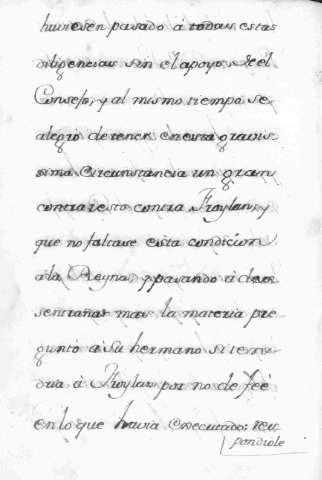 huviesen pasado á todas estas
diligencias sin el apoyo de el
Consejo, y al mismo tiempo se
alegró de tener en esta gravis
sima Circunstancia un gran
contraresto contra Froylan, y
que no faltase esta condicion
á la Reyna, y pasando á des
entrañar mas la materia pre
guntó á Su hermano si ten
dria á Froylan por no de feé
en lo que havia executado: res
pondiole